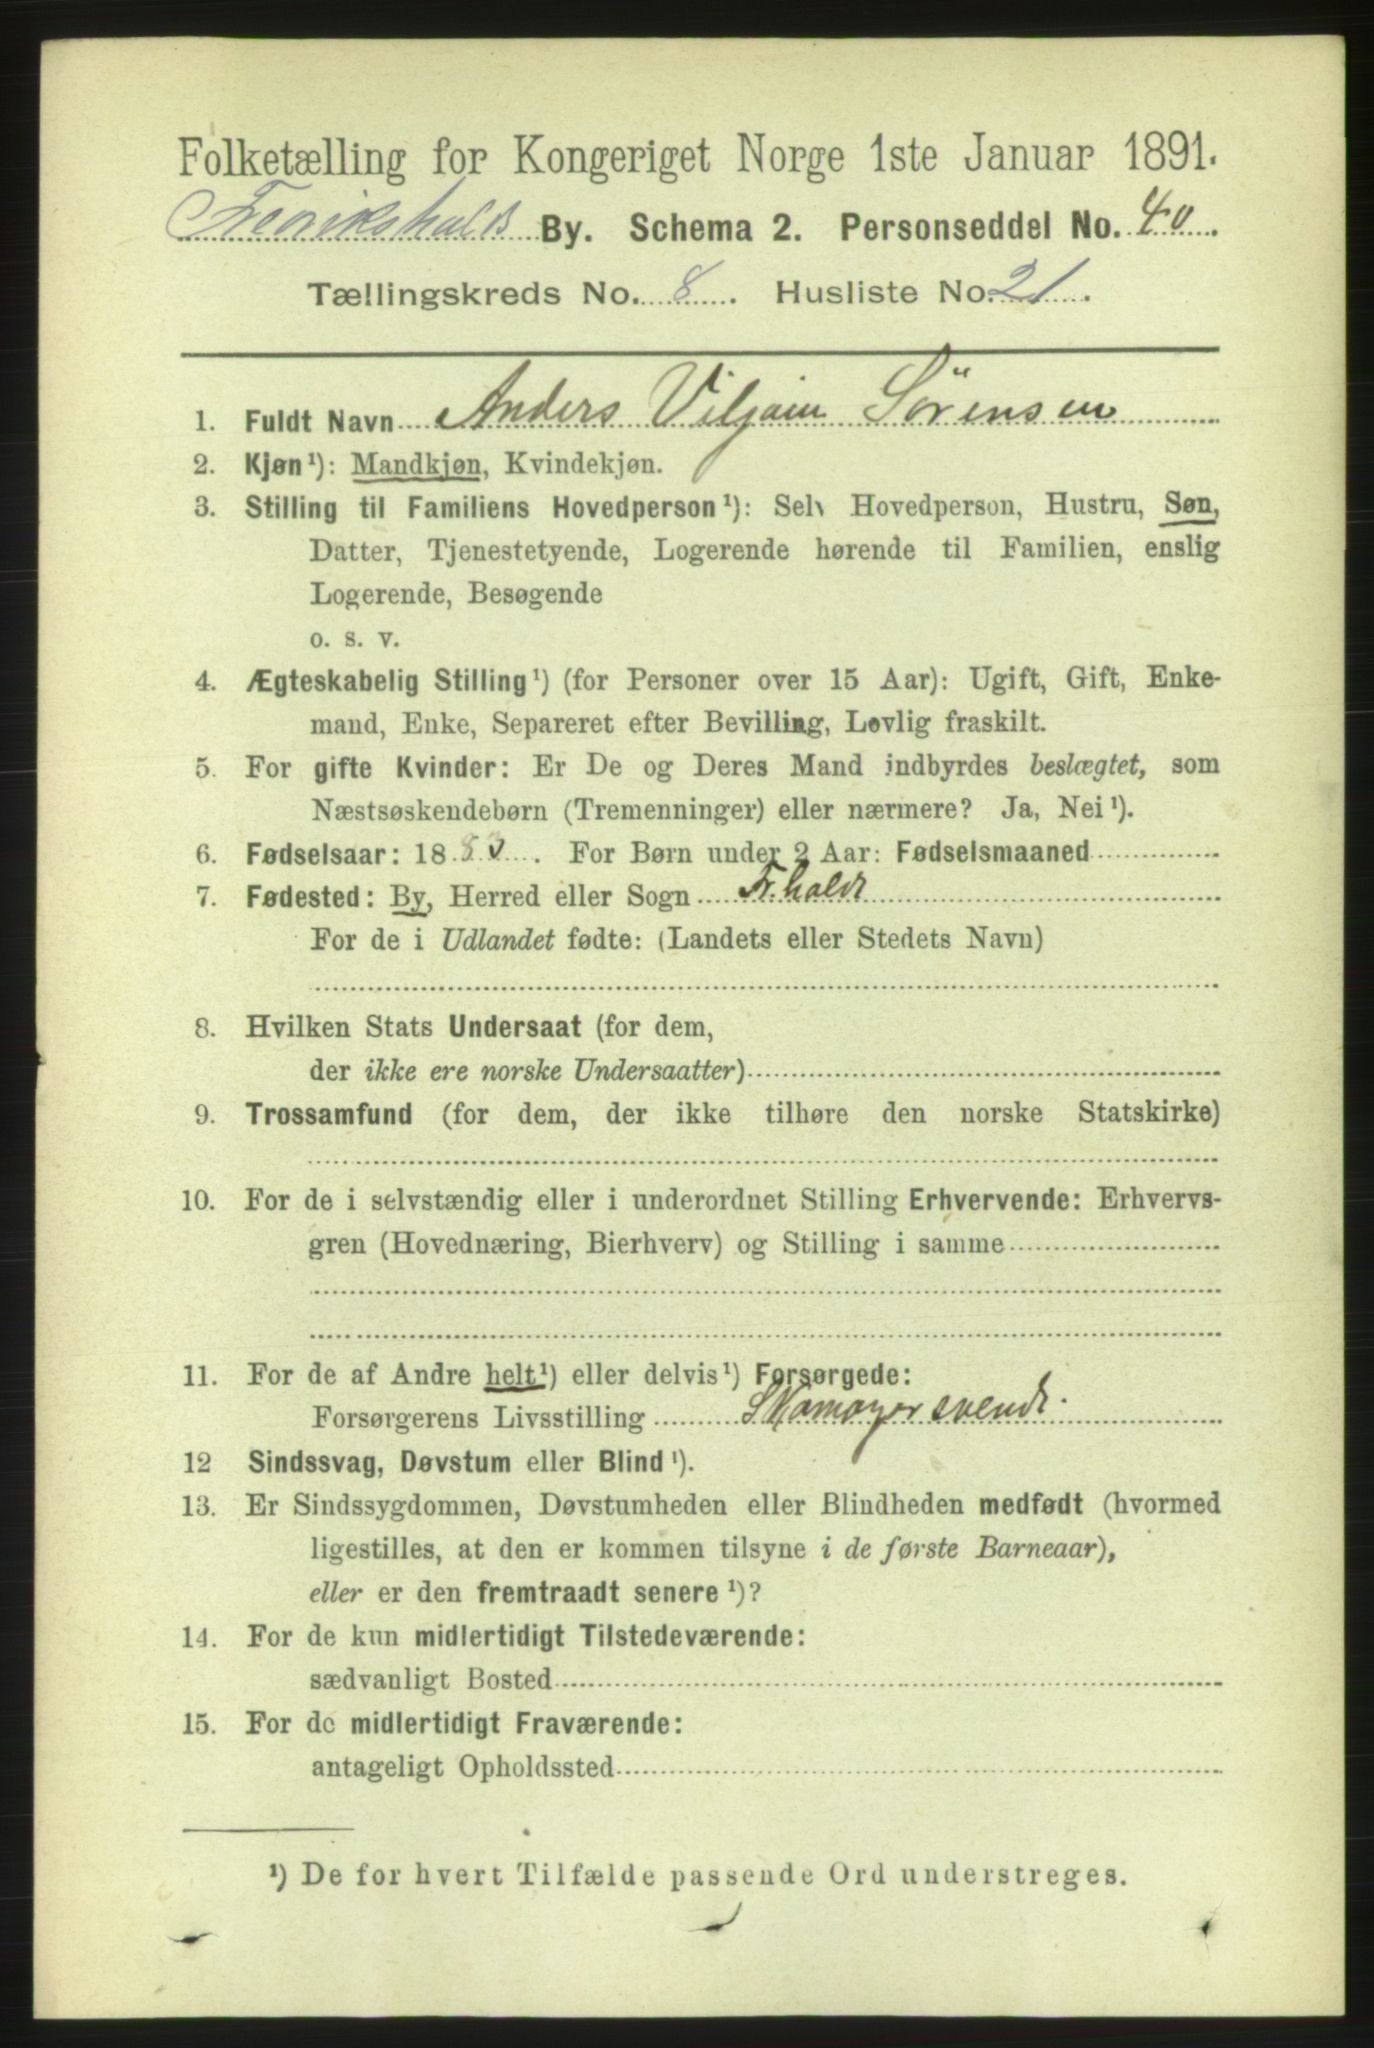 Folketælling for Kongeriget Norge 1ste Januar 1891.
Fredrikshalds By. Schema 2. Personseddel No. 40.
Tællingskreds No. 8. Husliste No. 21.
1. Fuldt Navn Anders Viljam Sörensen
2. Kjøn¹): Mandkjøn, Kvindekjøn.
3. Stilling til Familiens Hovedperson¹): Selv Hovedperson, Hustru, Søn,
Datter, Tjenestetyende, Logerende hørende til Familien, enslig
Logerende, Besøgende
o. s. v.
4. Ægteskabelig Stilling¹) (for Personer over 15 Aar): Ugift, Gift, Enke-
mand, Enke, Separeret efter Bevilling, Lovlig fraskilt.
5. For gifte Kvinder: Er De og Deres Mand indbyrdes beslægtet, som
Næstsøskendebørn (Tremenninger) eller nærmere? Ja, Nei¹).
6. Fødselsaar: 18 . For Børn under 2 Aar: Fødselsmaaned
7. Fødested: By, Herred eller Sogn Fr.hald
For de i Udlandet fødte: (Landets eller Stedets Navn)
8. Hvilken Stats Undersaat (for dem,
der ikke ere norske Undersaatter)
9. Trossamfund (for dem, der ikke tilhøre den norske Statskirke)
10. For de i selvstændig eller i underordnet Stilling Erhvervende: Erhvervs-
gren (Hovednæring, Bierhverv) og Stilling i samme
11. For de af Andre helt¹) eller delvis¹) Forsørgede:
Forsørgerens Livsstilling Skomagersvend.
12 Sindssvag, Døvstum eller Blind¹).
13. Er Sindssygdommen, Døvstumheden eller Blindheden medfødt (hvormed
ligestilles, at den er kommen tilsyne i de første Barneaar),
eller er den fremtraadt senere¹)?
14. For de kun midlertidigt Tilstedeværende:
sædvanligt Bosted
15. For de midlertidigt Fraværende:
antageligt Opholdssted
¹) De for hvert Tilfælde passende Ord understreges.